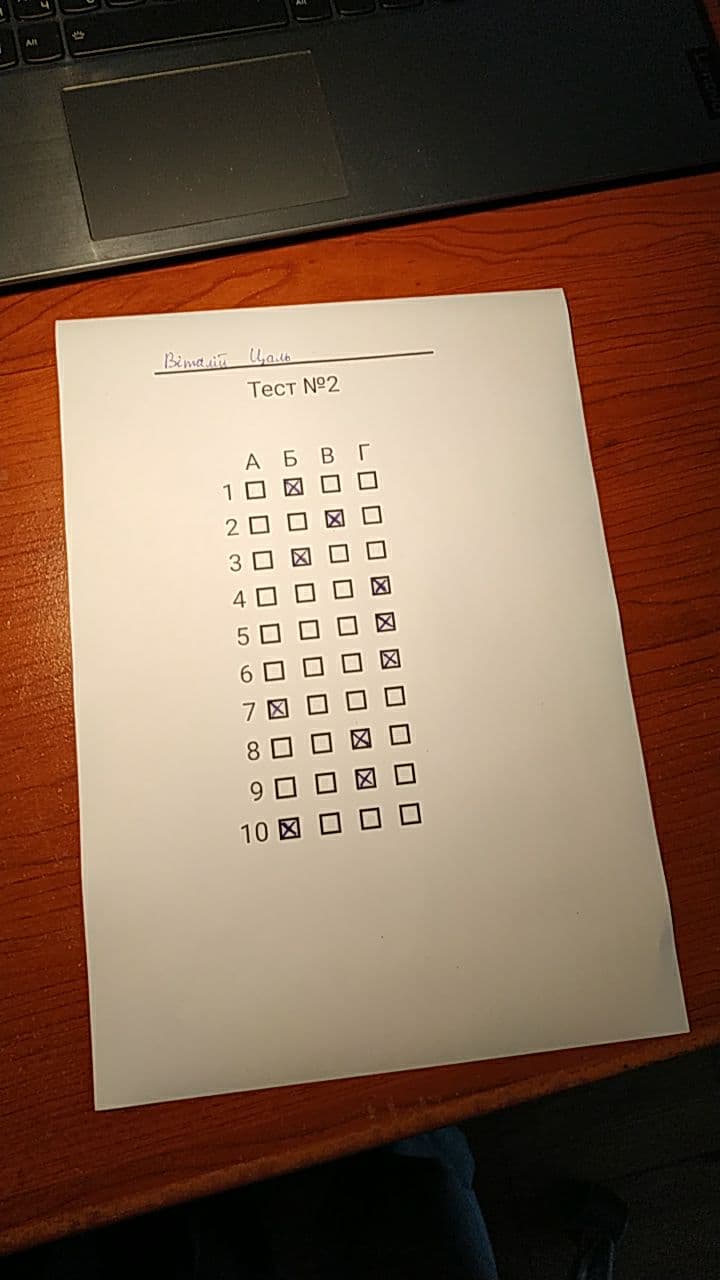 Віталій Цаль
Тест №2
А Б В Г
1
2
3
4
5
6
7
8
9
10
Alt
Alt